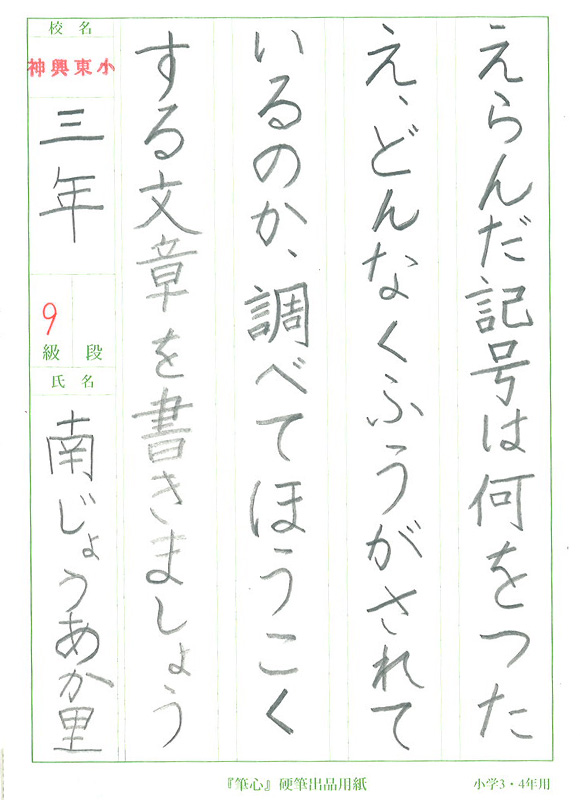 えらんだ記号は何をつた
え、どんなくふうがされて
いるのか、調べてほうこく
する文章を書きましょう
校名
神興東小
三年
9
級 段
氏名
南じょうあか里
『筆心』硬筆出品用紙
小学3・4年用